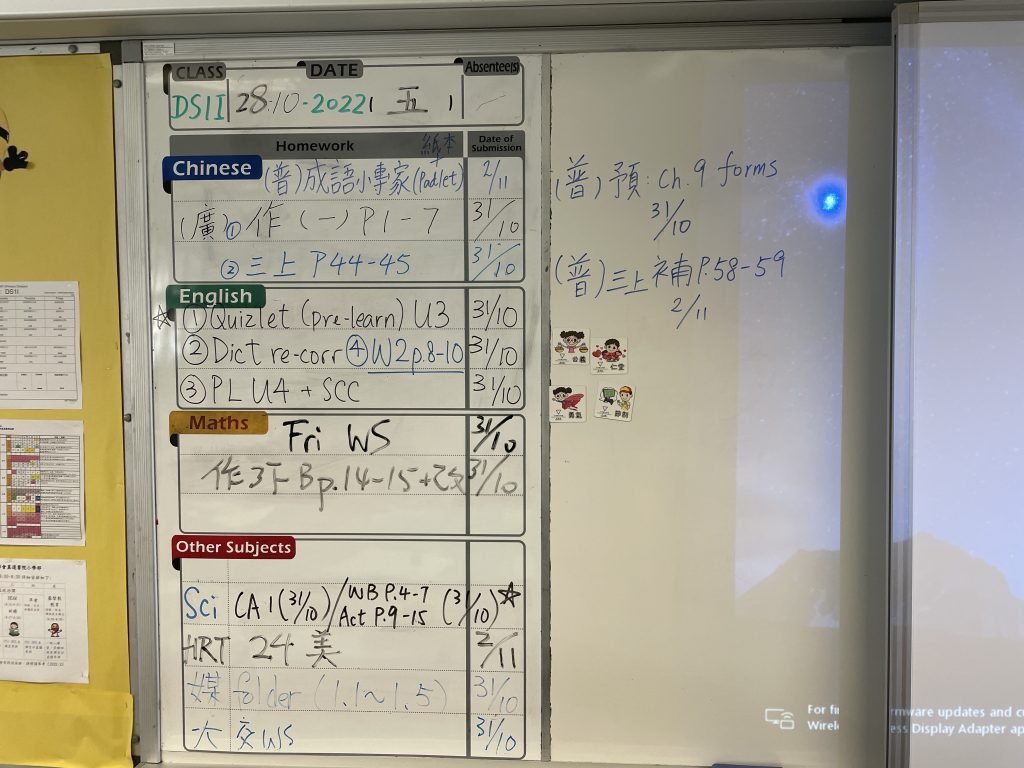 CLASS DATE Absentee(s)
DS1I 28.10.2022 ( 五 )
Homework 紙本 Date of Submission
Chinese
(普) 成語小專家 (Padlet) 2/11
(廣) ① 作 (一) P1-7 31/10
② 三上 P44-45 31/10
English
☆ ① Quizlet (pre-learn) U3 31/10
② Dict re-corr ④ W2 p.8-10 31/10
③ PL U4 + SCC 31/10
Maths
Fri WS 31/10
作 3下B p.14-15 + 改 31/10
Other Subjects
Sci CA 1 (31/10) / WB P.4-7
Act P.9-15 (31/10) ☆
HRT 24 美 2/11
folder (1.1~1.5) 31/10
交 WS 31/10
(普) 預: Ch.9 forms
31/10
(普) 三上 補 P.58-59
2/11
公義
仁愛
勇氣
節制
DS1I
For fi
Wirele
rmware updates and cu
ess Display Adapter ap